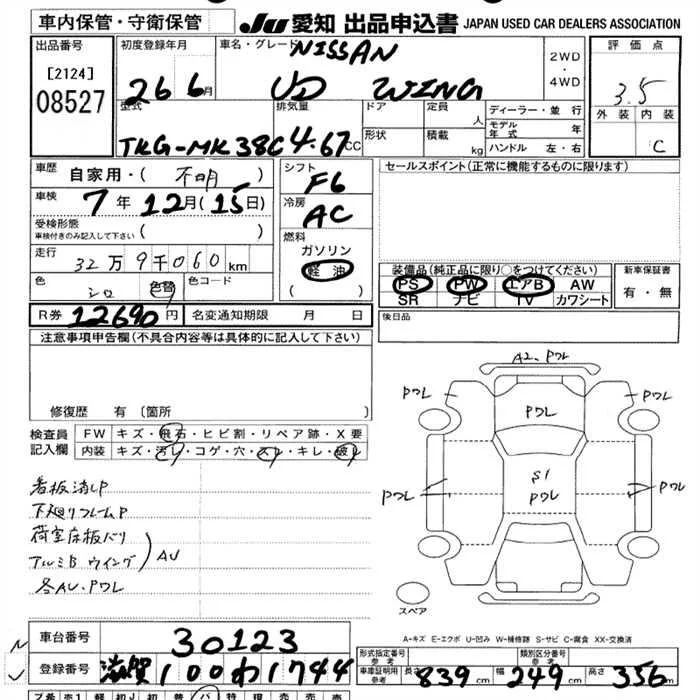 車内保管・守衛保管
JU 愛知 出品申込書 JAPAN USED CAR DEALERS ASSOCIATION
出品番号 [2124] 08527
初度登録年月 26 6月
車名・グレード NISSAN UD WING
2WD・4WD
評価点 3.5
外装 内装 C
型式 TKG-MK38C
排気量 4.67CC
ドア 定員 人
形状 積載 kg
ディーラー・並行
モデル年式 年
ハンドル 左・右
車歴 自家用・(不明)
車検 7年12月(15日)
受検形態 車検付きのみ記入して下さい ( )
走行 32万9千060km
色 シロ 色替 色コード
R券 12690円 名変通知期限 月 日
シフト F6
冷房 AC
燃料 ガソリン 軽油 ( )
セールスポイント(正常に機能するものに限ります)
装備品(純正品に限り○をつけてください)
PS PW エアB AW
SR ナビ TV カワシート
新車保証書 有・無
後日品
注意事項申告欄(不具合内容等は具体的に記入して下さい)
修復歴 有 [箇所 ]
検査員記入欄
FW キズ・飛石・ヒビ割・リペア跡・X要
内装 キズ・汚レ・コゲ・穴・スレ・キレ・破レ
看板消しP
下廻りフレームP
荷室床板バリ
アルミB ウイング) AU
各AU・Pワレ
A2、Pワレ
Pワレ
Pワレ
Pワレ
S1
Pワレ
Pワレ
Pワレ
スペア
A-キズ E-エクボ U-凹み W-補修跡 S-サビ C-腐食 XX-交換済
車台番号 30123
登録番号 滋賀100わ1744
形式指定番号 参考
類別区分番号 参考
車庫証明用 参考 長さ 839cm 幅 249cm 高さ 356cm